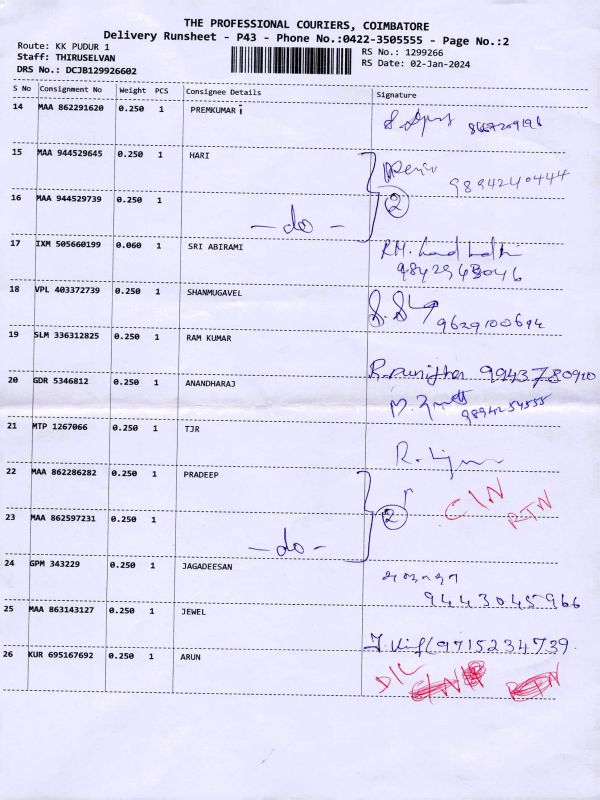 THE PROFESSIONAL COURIERS, COIMBATORE
Delivery Runsheet - P43 - Phone No.:0422-3505555 - Page No.:2
Route: KK PUDUR 1
Staff: THIRUSELVAN
DRS No.: DCJB129926602
RS No.: 1299266
RS Date: 02-Jan-2024
S No Consignment No Weight PCS Consignee Details Signature
14 MAA 862291620 0.250 1 PREMKUMAR i
15 MAA 944529645 0.250 1 HARI 9894240444
16 MAA 944529739 0.250 1 - do - 2
17 IXM 505660199 0.060 1 SRI ABIRAMI
18 VPL 403372739 0.250 1 SHANMUGAVEL 9629100694
19 SLM 336312825 0.250 1 RAM KUMAR
20 GDR 5346812 0.250 1 ANANDHARAJ 9894254555
21 MTP 1267066 0.250 1 TJR
22 MAA 862286282 0.250 1 PRADEEP C/N RTN
23 MAA 862597231 0.250 1 - do - 2
24 GPM 343229 0.250 1 JAGADEESAN 9443045966
25 MAA 863143127 0.250 1 JEWEL 9715234739
26 KUR 695167692 0.250 1 ARUN D/L